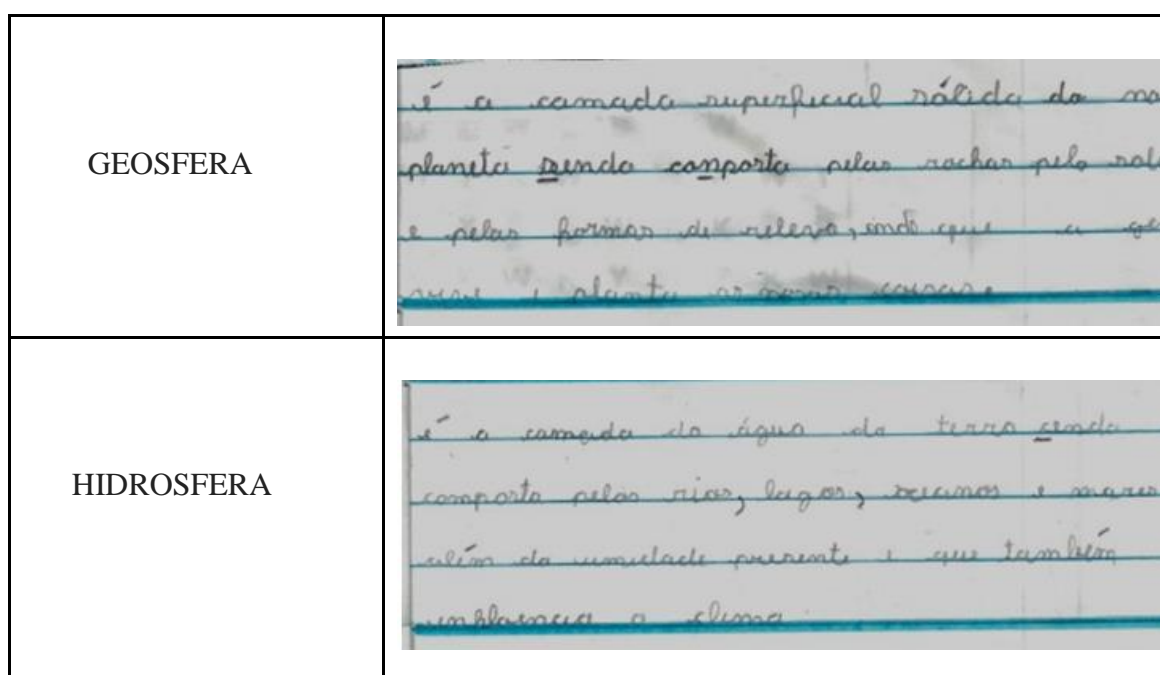 GEOSFERA
é a camada superficial sólida do no
planeta sendo conposta pelas rochas pelo sol
e pelas formas de relevo, que a ge
vive e planta as
HIDROSFERA
é a camada da água da terra cenda
composta pelos rios, lagos, oceanos e mares
além da umidade presente e que também
o clima